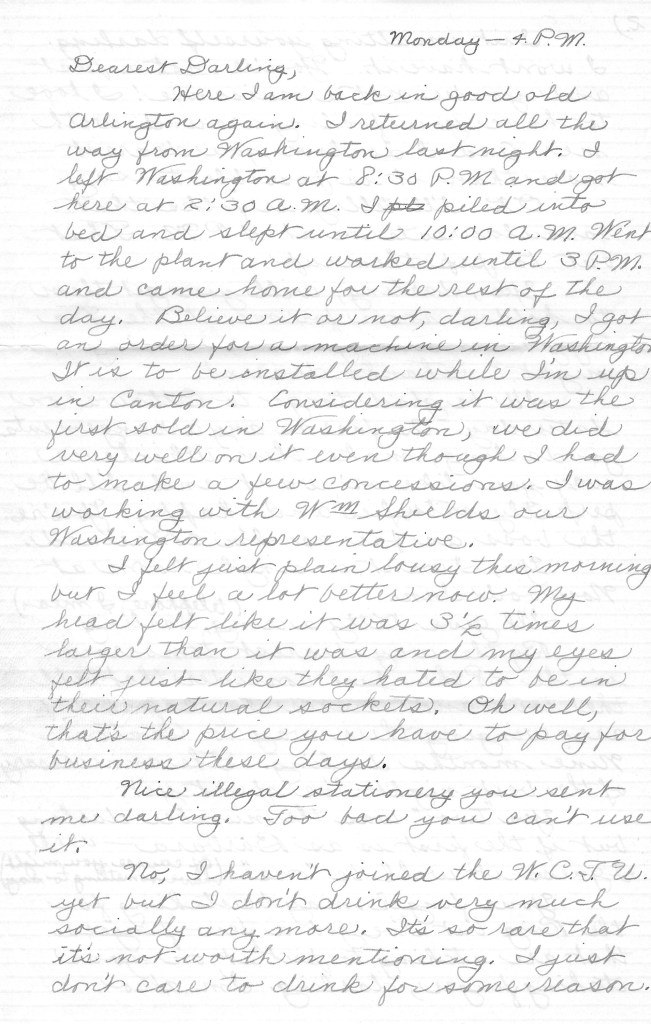 Monday — 4 P.M.
Dearest Darling,
Here I am back in good old
Arlington again. I returned all the
way from Washington last night. I
left Washington at 8:30 P.M and got
here at 2:30 A.M. I piled into
bed and slept until 10:00 A.M. Went
to the plant and worked until 3 P.M.
and came home for the rest of the
day. Believe it or not, darling, I got
an order for a machine in Washington
It is to be installed while I'm up
in Canton. Considering it was the
first sold in Washington, we did
very well on it even though I had
to make a few concessions. I was
working with Wm Shields our
Washington representative.
I felt just plain lousy this morning
but I feel a lot better now. My
head felt like it was 3 1/2 times
larger than it was and my eyes
felt just like they hated to be in
their natural sockets. Oh well,
that's the price you have to pay for
business these days.
Nice illegal stationery you sent
me darling. Too bad you can't use
it.
No, I haven't joined the W.C.T.U.
yet but I don't drink very much
socially any more. It's so rare that
it's not worth mentioning. I just
don't care to drink for some reason.